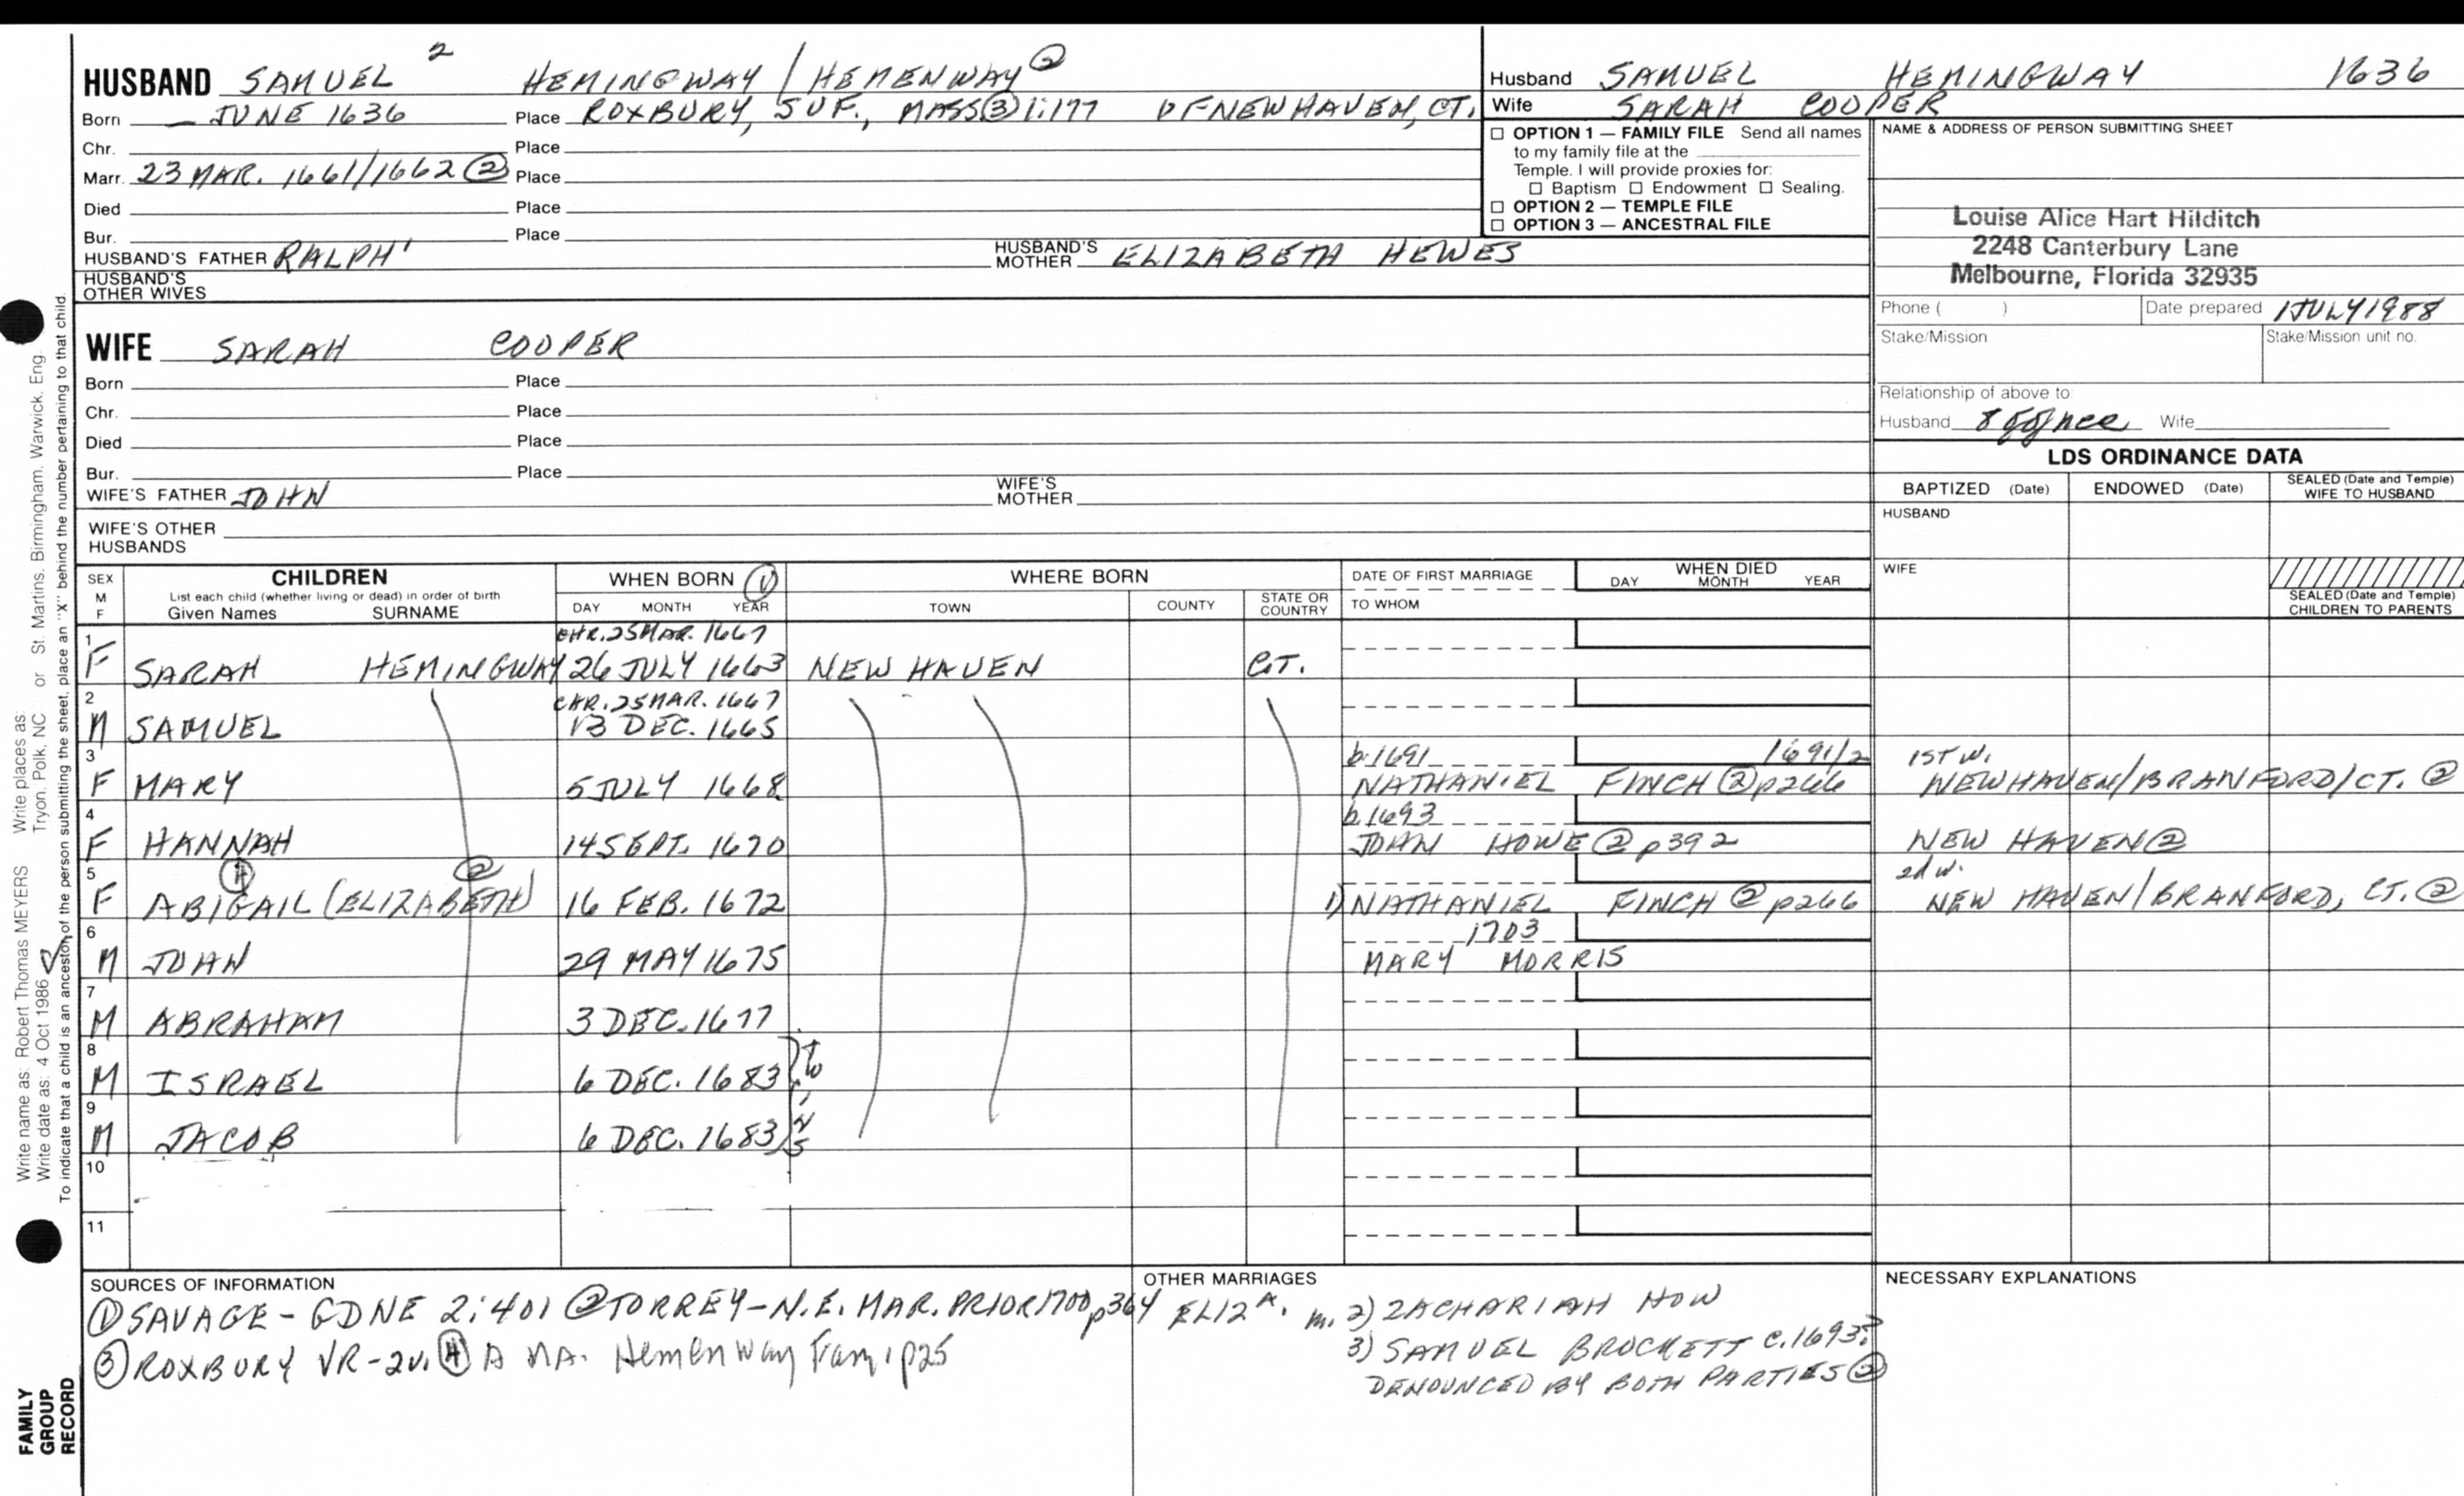 HUSBAND SAMUEL 2 HEMINGWAY / HEMENWAY ②
Born — JUNE 1636 Place ROXBURY, SUF., MASS ③ 1:177 OF NEW HAVEN, CT.
Chr. Place
Marr. 23 MAR. 1661/1662 ② Place
Died Place
Bur. Place
HUSBAND'S FATHER RALPH 1 HUSBAND'S MOTHER ELIZABETH HEWES
HUSBAND'S OTHER WIVES
Husband SAMUEL HEMINGWAY 1636
Wife SARAH COOPER
☐ OPTION 1 — FAMILY FILE Send all names
to my family file at the
Temple. I will provide proxies for:
☐ Baptism ☐ Endowment ☐ Sealing.
☐ OPTION 2 — TEMPLE FILE
☐ OPTION 3 — ANCESTRAL FILE
NAME & ADDRESS OF PERSON SUBMITTING SHEET
Louise Alice Hart Hilditch
2248 Canterbury Lane
Melbourne, Florida 32935
Phone ( ) Date prepared 1 JULY 1988
Stake/Mission Stake/Mission unit no.
Relationship of above to:
Husband 8 Wife
WIFE SARAH COOPER
Born Place
Chr. Place
Died Place
Bur. Place
WIFE'S FATHER JOHN WIFE'S MOTHER
WIFE'S OTHER HUSBANDS
LDS ORDINANCE DATA
BAPTIZED (Date) ENDOWED (Date) SEALED (Date and Temple) WIFE TO HUSBAND
HUSBAND
WIFE
SEALED (Date and Temple) CHILDREN TO PARENTS
SEX M F
CHILDREN
List each child (whether living or dead) in order of birth
Given Names SURNAME
WHEN BORN ①
DAY MONTH YEAR
WHERE BORN
TOWN COUNTY STATE OR COUNTRY
DATE OF FIRST MARRIAGE
TO WHOM
WHEN DIED
DAY MONTH YEAR
1 CHR. 25 MAR. 1667
F SARAH HEMINGWAY 26 JULY 1663 NEW HAVEN CT.
2 CHR. 25 MAR. 1667
M SAMUEL 13 DEC. 1665
3 b. 1691 1691/2 1ST W.
F MARY 5 JULY 1668 NATHANIEL FINCH ② p266 NEW HAVEN/BRANFORD/CT. ②
4 b. 1693
F HANNAH 14 SEPT. 1670 JOHN HOWE ② p392 NEW HAVEN ②
5 ④ ② 2d W.
F ABIGAIL (ELIZABETH) 16 FEB. 1672 1) NATHANIEL FINCH ② p266 NEW HAVEN/BRANFORD, CT. ②
6 1703
M JOHN 29 MAY 1675 MARY MORRIS
7
M ABRAHAM 3 DEC. 1677
8
M ISRAEL 6 DEC. 1683 } twins
9
M JACOB 6 DEC. 1683
10
11
SOURCES OF INFORMATION
① SAVAGE - GDNE 2:401 ② TORREY - N.E. MAR. PRIOR 1700 p364
③ ROXBURY VR - 2v. ④ Hemenway Fam, p25
OTHER MARRIAGES
ELIZ A. m. 2) ZACHARIAH HOW
3) SAMUEL BROCKETT c. 1693?
DENOUNCED BY BOTH PARTIES ②
NECESSARY EXPLANATIONS
FAMILY GROUP RECORD
Write name as: Robert Thomas MEYERS Write places as: Tryon, Polk, NC or St. Martins, Birmingham, Warwick, Eng.
Write date as: 4 Oct 1986
To indicate that a child is an ancestor of the person submitting the sheet, place an "X" behind the number pertaining to that child.